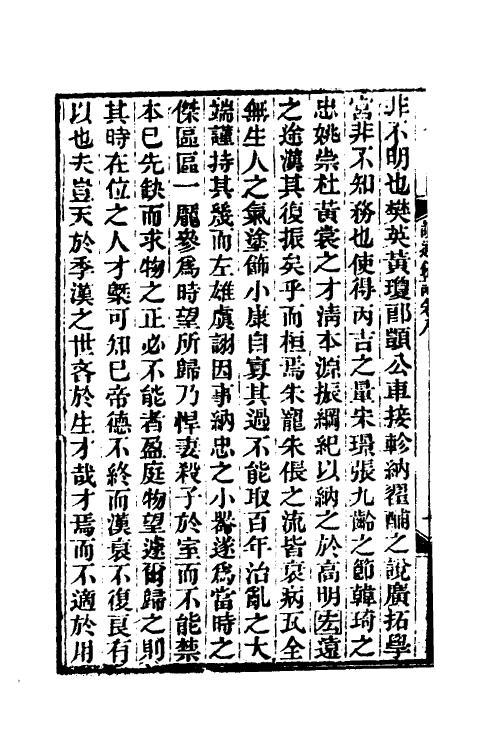 非不明也樊英黃瓊郎顗公車接軫納翟酺之說廣拓學
宮非不知務也使得丙吉之量宋璟張九齡之節韓琦之
忠姚崇杜黃裳之才淸本源振綱紀以納之於高明宏遠
之途漢其復振矣乎而桓焉朱寵朱倀之流皆衰病瓦全
無生人之氣塗飾小康自寡其過不能取百年治亂之大
端謹持其幾而左雄虞詡因事納忠之小器遂爲當時之
傑區區一龐參爲時望所歸乃悍妻殺子於室而不能禁
本已先缺而求物之正必不能者盈庭物望遽爾歸之則
其時在位之人才槩可知已帝德不終而漢衰不復良有
以也夫豈天於季漢之世吝於生才哉才焉而不適於用